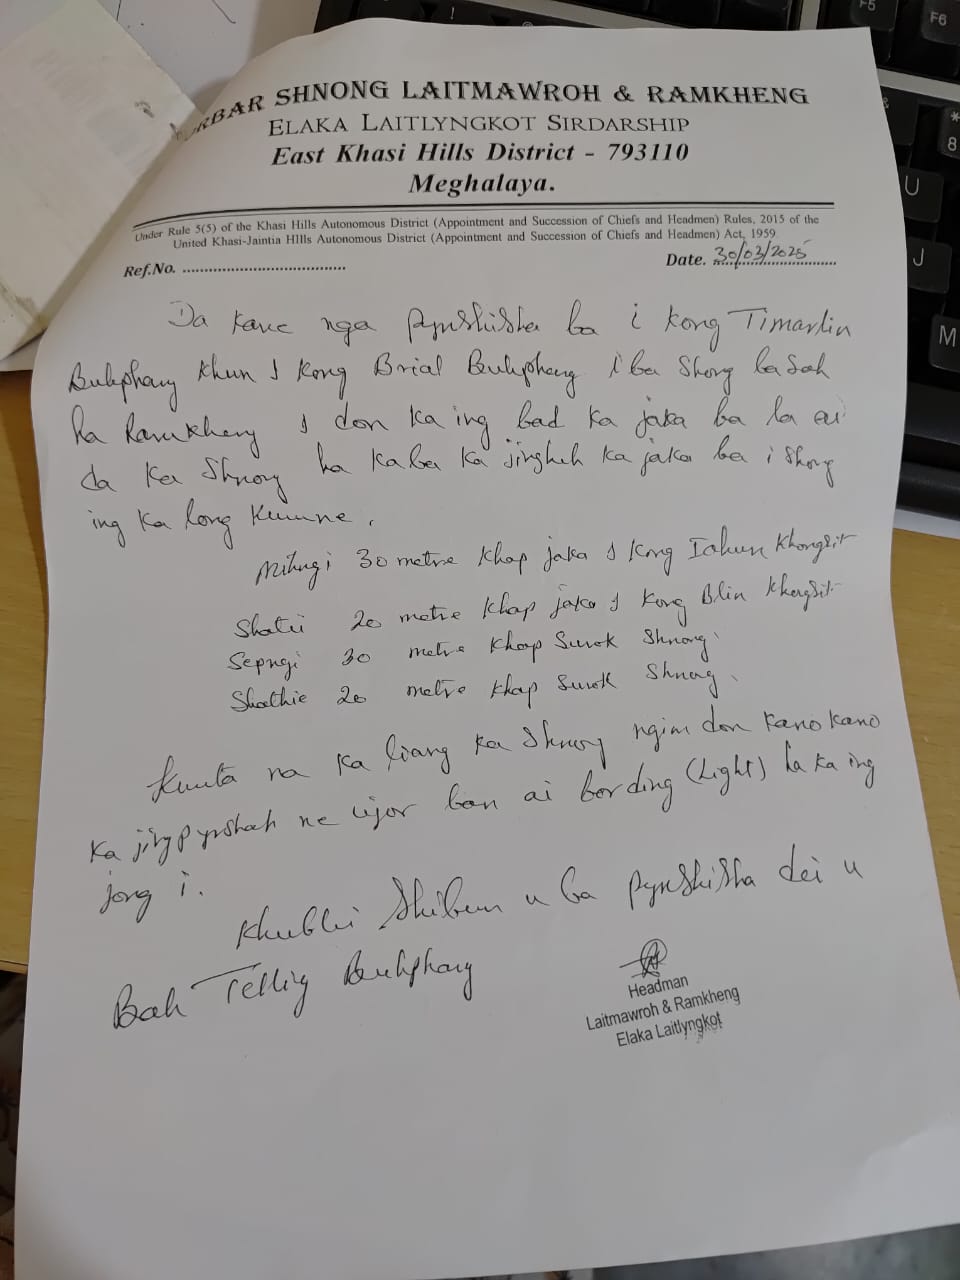 DORBAR SHNONG LAITMAWROH & RAMKHENG
ELAKA LAITLYNGKOT SIRDARSHIP
East Khasi Hills District - 793110
Meghalaya.
Under Rule 5(5) of the Khasi Hills Autonomous District (Appointment and Succession of Chiefs and Headmen) Rules, 2015 of the
United Khasi-Jaintia HIlls Autonomous District (Appointment and Succession of Chiefs and Headmen) Act, 1959
Ref.No. ..................................... Date. 30/03/2025
Da kane nga pynshisha ba i kong Timarlin
Buhphang khun I kong Brial Buhphang i ba shong basah
ha Ramkheng I don ka ing bad ka jaka ba la ai
da ka Shnong ha kaba ka jingheh ka jaka ba i shong
ing ka long kumne.
Mihngi 30 metre khap jaka I kong Iahun Khongsit
Shatei 20 metre khap jaka I kong Blin Khongsit
Sepngi 30 metre khap Surok Shnong
Shathie 20 metre khap Surok Shnong
Kumta na ka liang ka Shnong ngim don kano kano
ka jingpyrshah ne ujor ban ai bording (Light) ha ka ing
jong i.
Khublei Shibun u ba pynshisha dei u
Bah Buhphang
Headman
Laitmawroh & Ramkheng
Elaka Laitlyngkot
F5
F6
*
8
U
J
M